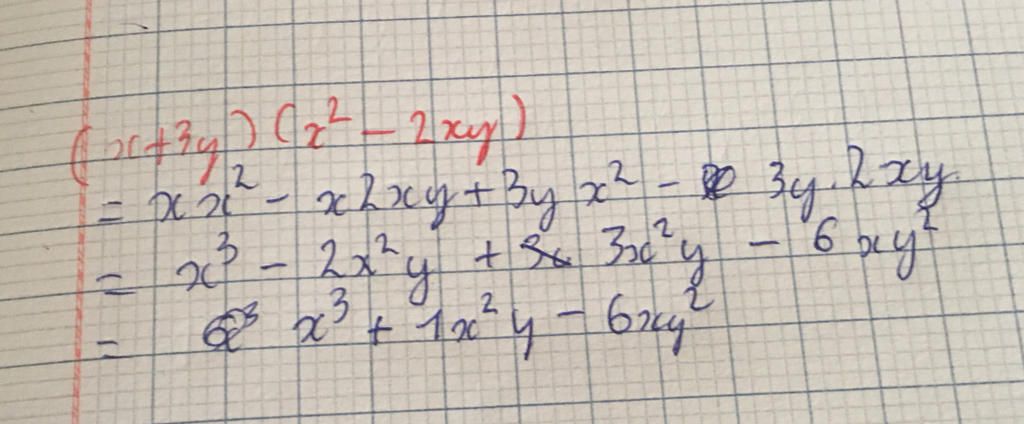 (x+3y)(x² - 2xy)
= x x² - x2xy + 3y x² - 3y.2xy
= x³ - 2x²y + 3x²y - 6xy²
= x³ + 1x²y - 6xy²